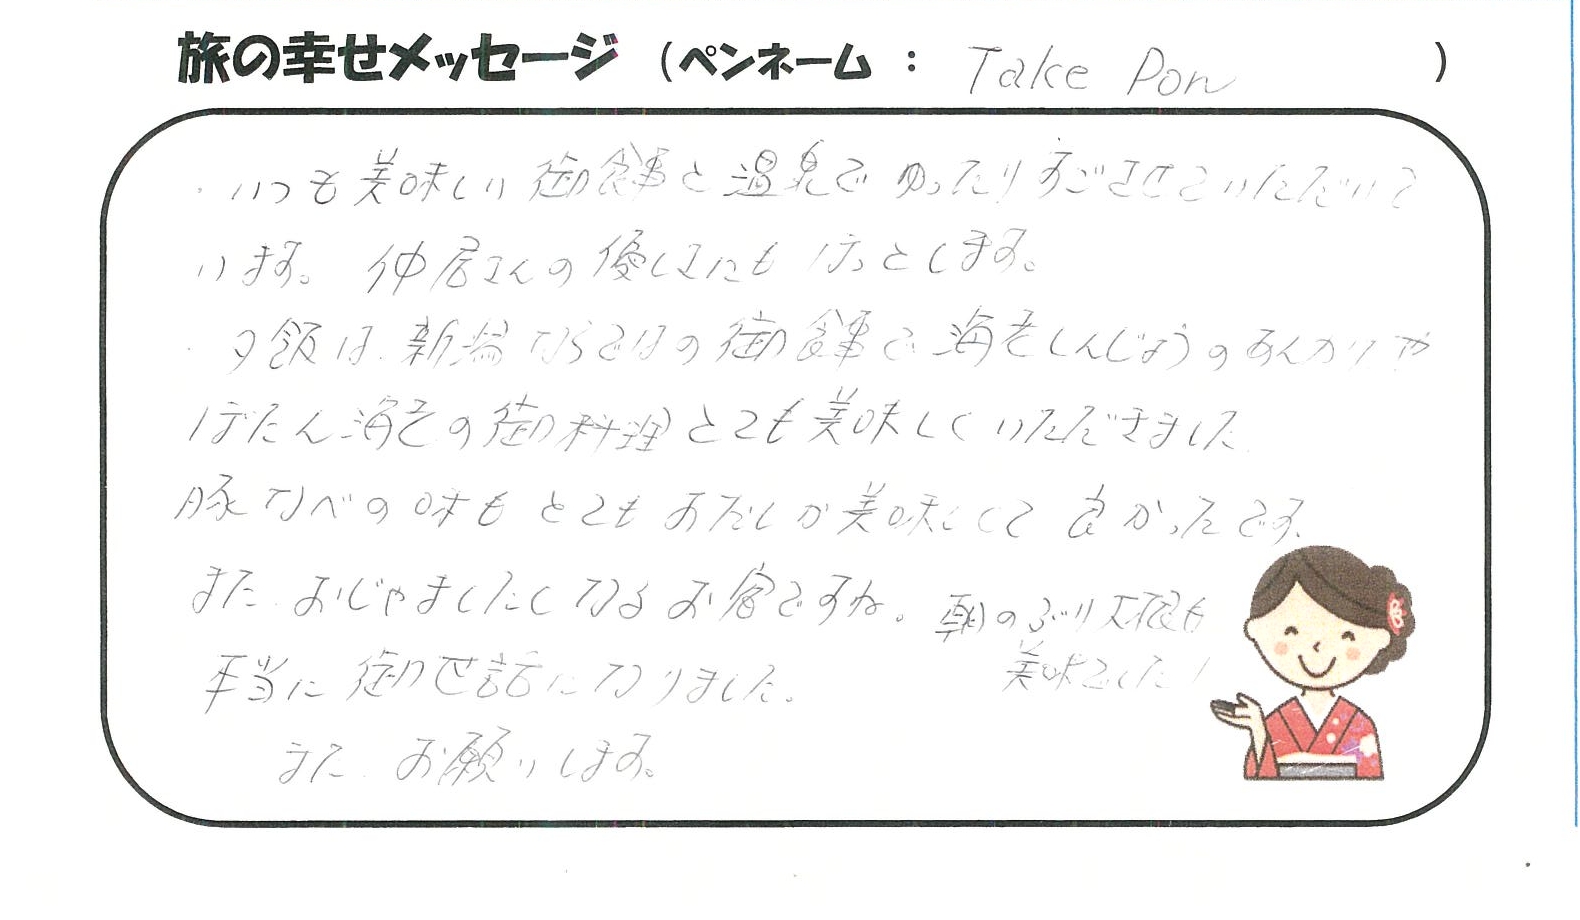 旅の幸せメッセージ (ペンネーム : Take Pon )
・いつも美味しい御食事と温泉でゆったりすごさせていただいて
います。仲居さんの優しさにもほっとします。
・夕飯は、新潟ならではの御食事で海老しんじょうのあんかけや
ぼたん海老の御料理とても美味しくいただきました
豚なべの味もとてもおだしが美味しくて良かったです。
また、おじゃましたくなるお宿ですね。
朝のぶり大根も
美味でした!
本当に御世話になりました。
また、お願いします。